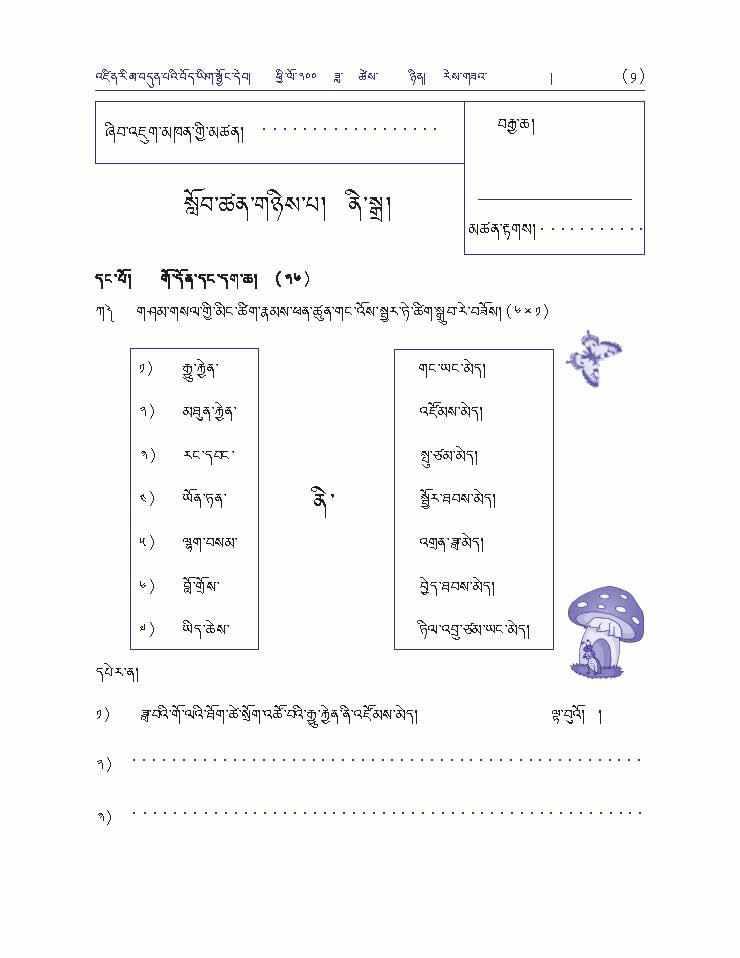 འཛིན་རིམ་བདུན་པའི་བོད་ཡིག་སྦྱོང་དེབ། ཕྱི་ལོ་༢༠༠ ཟླ་ ཚེས་ ཉིན། རེས་གཟའ་ ། (༡)
ཞིབ་འཇུག་མཁན་གྱི་མཚན། ..................
བརྒྱ་ཆ།
སློབ་ཚན་གཉིས་པ། ནི་སྒྲ།
མཚན་རྟགས། ...........
དང་པོ། གོ་དོན་དང་དག་ཆ། (༡༦)
ཀ༽ གཤམ་གསལ་གྱི་མིང་ཚིག་རྣམས་ཕན་ཚུན་གང་འོས་སྦྱར་ཏེ་ཚིག་སྒྲུབ་རེ་བཟོས། (༦×༡)
༡) རྒྱུ་རྐྱེན་ གང་ཡང་མེད།
༢) མཐུན་རྐྱེན་ འཛོམས་མེད།
༣) རང་དབང་ སྤུ་ཙམ་མེད།
༤) ཡོན་ཏན་ ནི་ སྦྱོར་ཐབས་མེད།
༥) ལྷག་བསམ་ འགྲན་ཟླ་མེད།
༦) བློ་གྲོས་ བྱེད་ཐབས་མེད།
༧) ཡིད་ཆེས་ ཏིལ་འབྲུ་ཙམ་ཡང་མེད།
དཔེར་ན།
༡) ཟླ་བའི་གོ་ལའི་ཐོག་ཚེ་སྲོག་འཚོ་བའི་རྒྱུ་རྐྱེན་ནི་འཛོམས་མེད། ལྟ་བུའོ། །
༢) ..................................................
༣) ..................................................